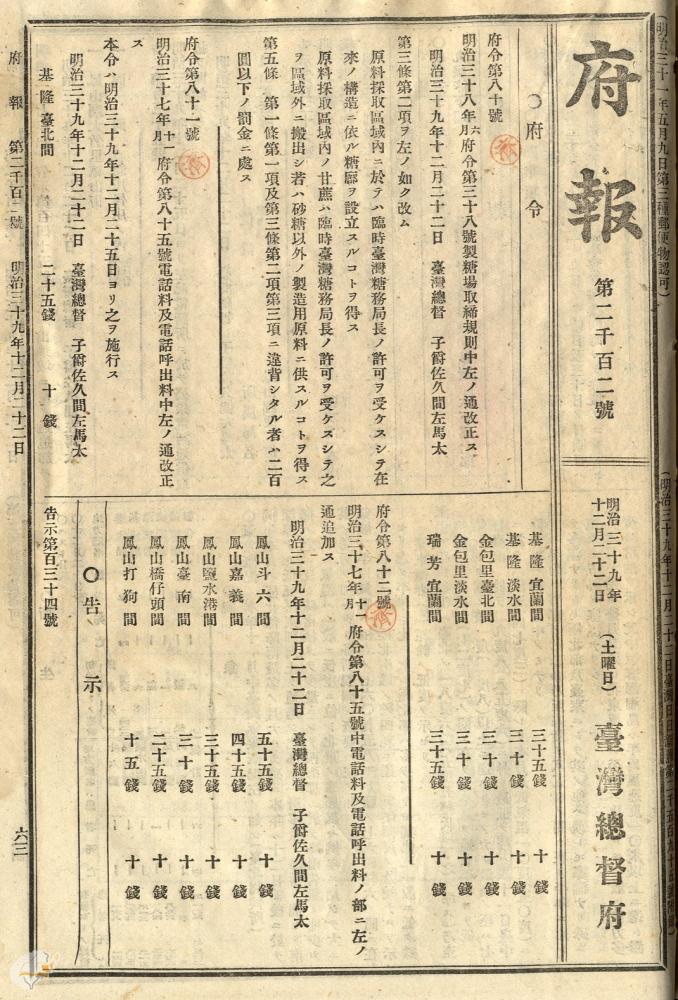 (明治三十一年五月九日第三種郵便物認可)
府報
第二千百二號
明治三十九年
十二月二十二日
(土曜日)
臺灣總督府
○府令
府令第八十號
明治三十八年六月府令第三十八號製糖場取締規則中左ノ通改正ス
明治三十九年十二月二十二日 臺灣總督 子爵佐久間左馬太
第三條第二項ヲ左ノ如ク改ム
原料採取區域內ニ於テハ臨時臺灣糖務局長ノ許可ヲ受ケスシテ在
來ノ構造ニ依ル糖廍ヲ設立スルコトヲ得ス
原料採取區域內ノ甘蔗ハ臨時臺灣糖務局長ノ許可ヲ受ケスシテ之
ヲ區域外ニ搬出シ若ハ砂糖以外ノ製造用原料ニ供スルコトヲ得ス
第五條 第一條第一項及第三條第二項第三項ニ違背シタル者ハ二百
圓以下ノ罰金ニ處ス
府令第八十一號
明治三十七年十一月府令第八十五號電話料及電話呼出料中左ノ通改正
ス
本令ハ明治三十九年十二月二十五日ヨリ之ヲ施行ス
明治三十九年十二月二十二日 臺灣總督 子爵佐久間左馬太
基隆臺北間 二十五錢 十錢
基隆宜蘭間 三十五錢 十錢
基隆淡水間 三十錢 十錢
金包里臺北間 三十錢 十錢
金包里淡水間 三十錢 十錢
瑞芳宜蘭間 三十五錢 十錢
府令第八十二號
明治三十七年十一月府令第八十五號中電話料及電話呼出料ノ部ニ左ノ
通追加ス
明治三十九年十二月二十二日 臺灣總督 子爵佐久間左馬太
鳳山斗六間 五十五錢 十錢
鳳山嘉義間 四十五錢 十錢
鳳山鹽水港間 三十五錢 十錢
鳳山臺南間 三十錢 十錢
鳳山橋仔頭間 二十五錢 十錢
鳳山打狗間 十五錢 十錢
○告示
告示第百三十四號
府報 第二千百二號 明治三十九年十二月二十二日 六三